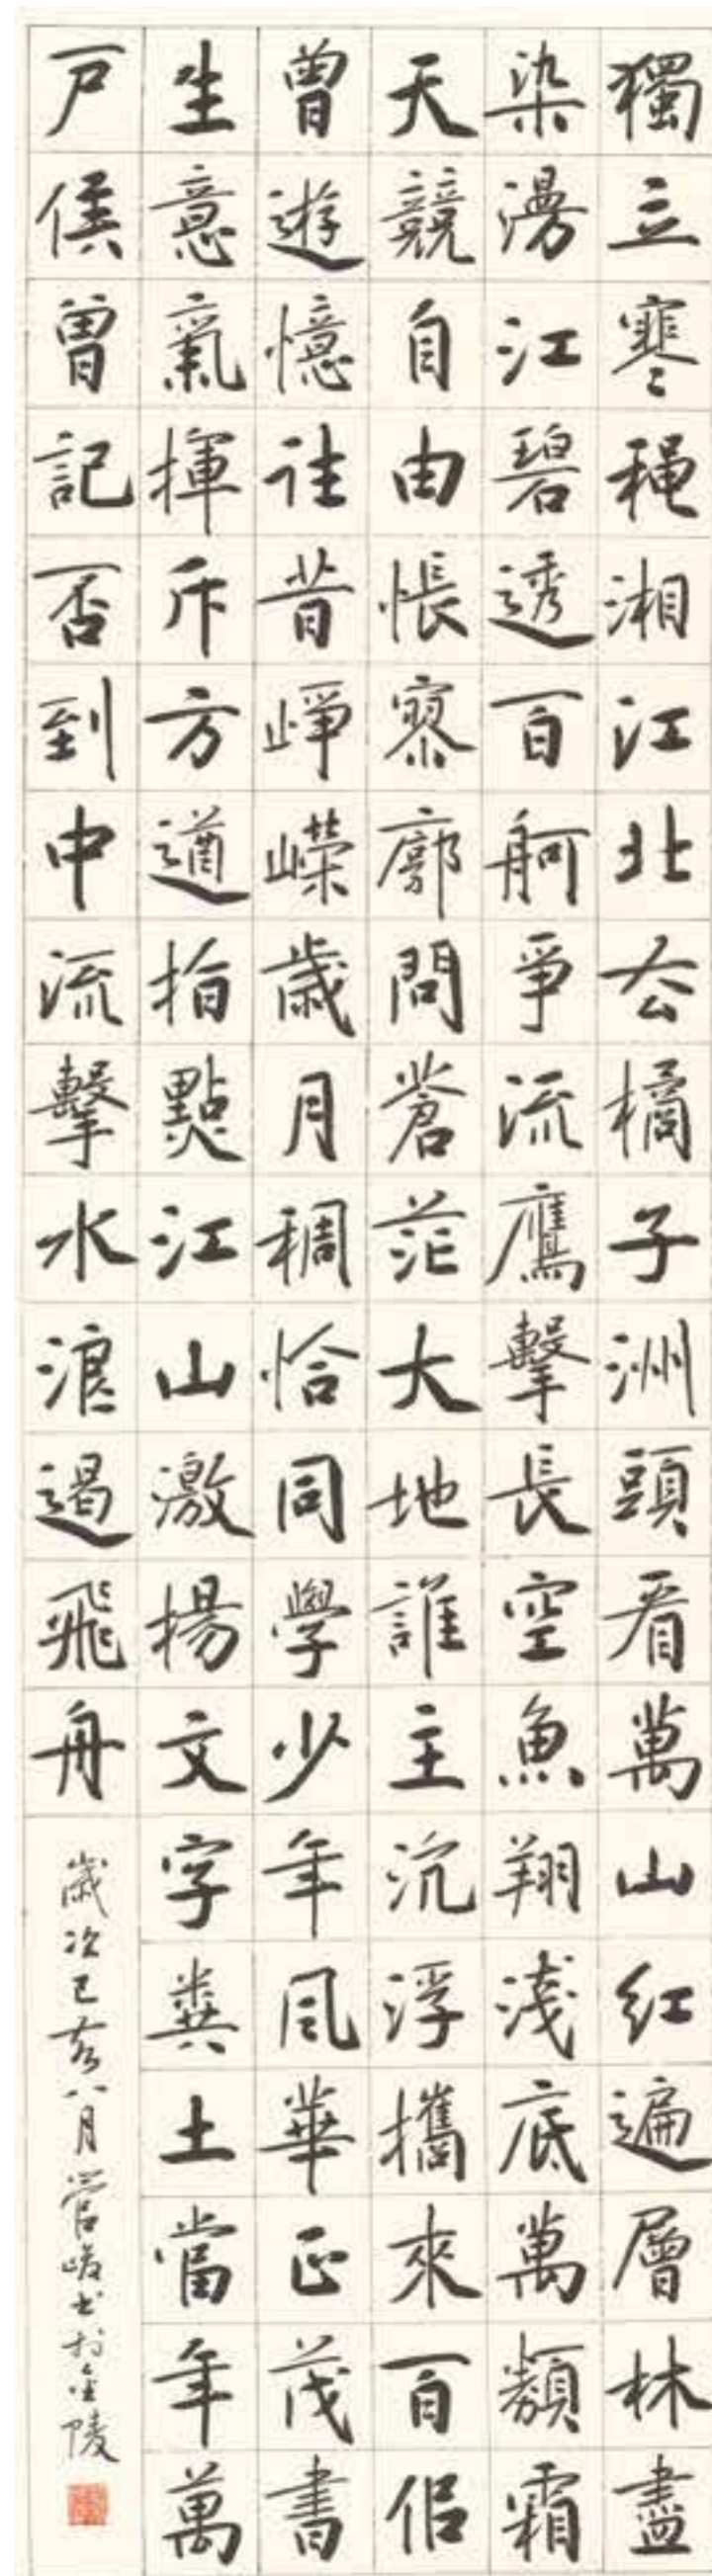 獨立寒穐湘江北去橘子洲頭看萬山紅遍層林盡
染漫江碧透百舸爭流鷹擊長空魚翔淺底萬類霜
天競自由悵寥廓問蒼茫大地誰主沉浮攜來百侶
曾遊憶往昔崢嶸歲月稠恰同學少年風華正茂書
生意氣揮斥方遒指點江山激揚文字糞土當年萬
戶侯曾記否到中流擊水浪遏飛舟
歲次己亥八月管峻書於金陵